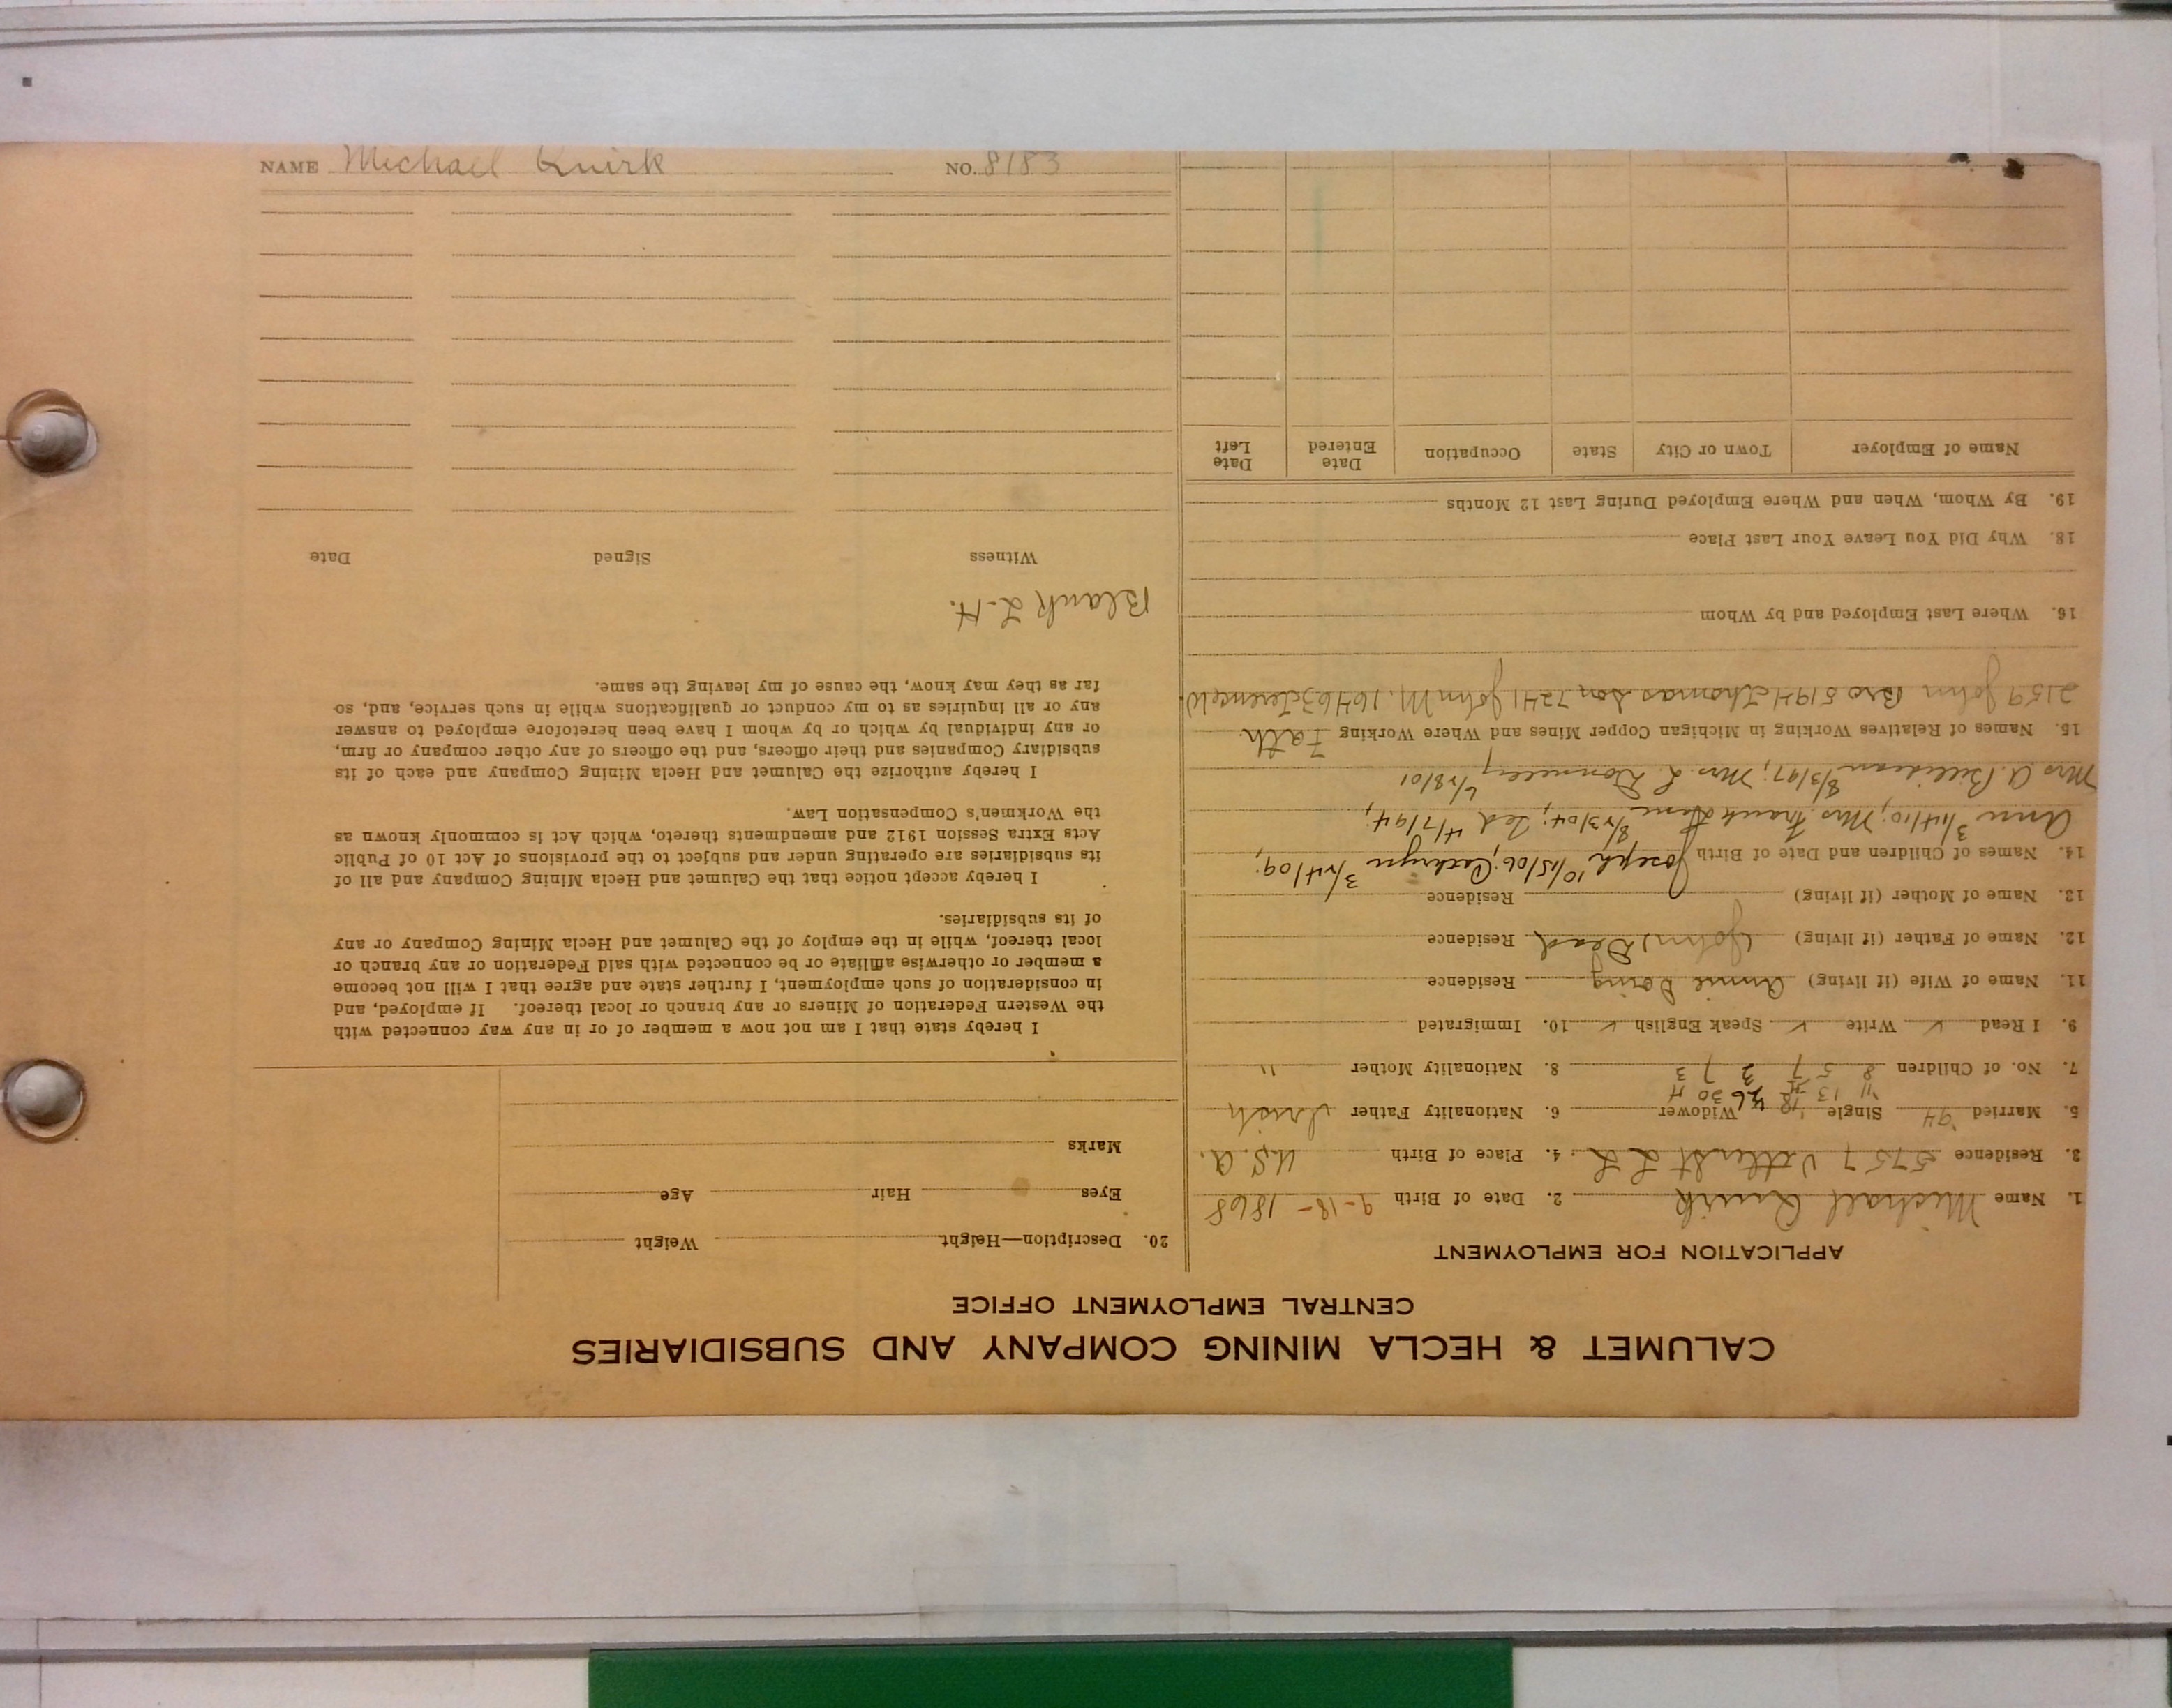 CALUMET & HECLA MINING COMPANY AND SUBSIDIARIES
CENTRAL EMPLOYMENT OFFICE
APPLICATION FOR EMPLOYMENT
1. Name Michael Quirk 2. Date of Birth 9-18-1868
3. Residence 5757 St L L. 4. Place of Birth U.S.A.
5. Married '94 Single Widower 6. Nationality Father Irish
'11 13 18 26 30 H
7. No. of Children 8 5 7 3 7 3 8. Nationality Mother "
9. I Read ✓ Write ✓ Speak English ✓ 10. Immigrated
11. Name of Wife (if living) Annie Doring Residence
12. Name of Father (if living) John Dead Residence
13. Name of Mother (if living) Residence
14. Names of Children and Date of Birth Joseph 10/15/06; Cathryn 3/24/09;
Ann 3/14/10; Mrs Frank 8/23/04; Ted 4/7/94;
Mrs A. 8/3/97; Mrs. L. Donnelly 6/28/01
15. Names of Relatives Working in Michigan Copper Mines and Where Working Fath
2159 John Bro 5194 Thomas Son 7241 John M. 16463 Terence W.
16. Where Last Employed and by Whom
18. Why Did You Leave Your Last Place
19. By Whom, When and Where Employed During Last 12 Months
Name of Employer Town or City State Occupation Date Entered Date Left
20. Description—Height Weight
Eyes Hair Age
Marks
I hereby state that I am not now a member of or in any way connected with
the Western Federation of Miners or any branch or local thereof. If employed, and
in consideration of such employment, I further state and agree that I will not become
a member or otherwise affiliate or be connected with said Federation or any branch or
local thereof, while in the employ of the Calumet and Hecla Mining Company or any
of its subsidiaries.
I hereby accept notice that the Calumet and Hecla Mining Company and all of
its subsidiaries are operating under and subject to the provisions of Act 10 of Public
Acts Extra Session 1912 and amendments thereto, which Act is commonly known as
the Workmen's Compensation Law.
I hereby authorize the Calumet and Hecla Mining Company and each of its
subsidiary Companies and their officers, and the officers of any other company or firm,
or any individual by which or by whom I have been heretofore employed to answer
any or all inquiries as to my conduct or qualifications while in such service, and, so
far as they may know, the cause of my leaving the same.
Blank L-H.
Witness Signed Date
NAME Michael Quirk NO. 8183